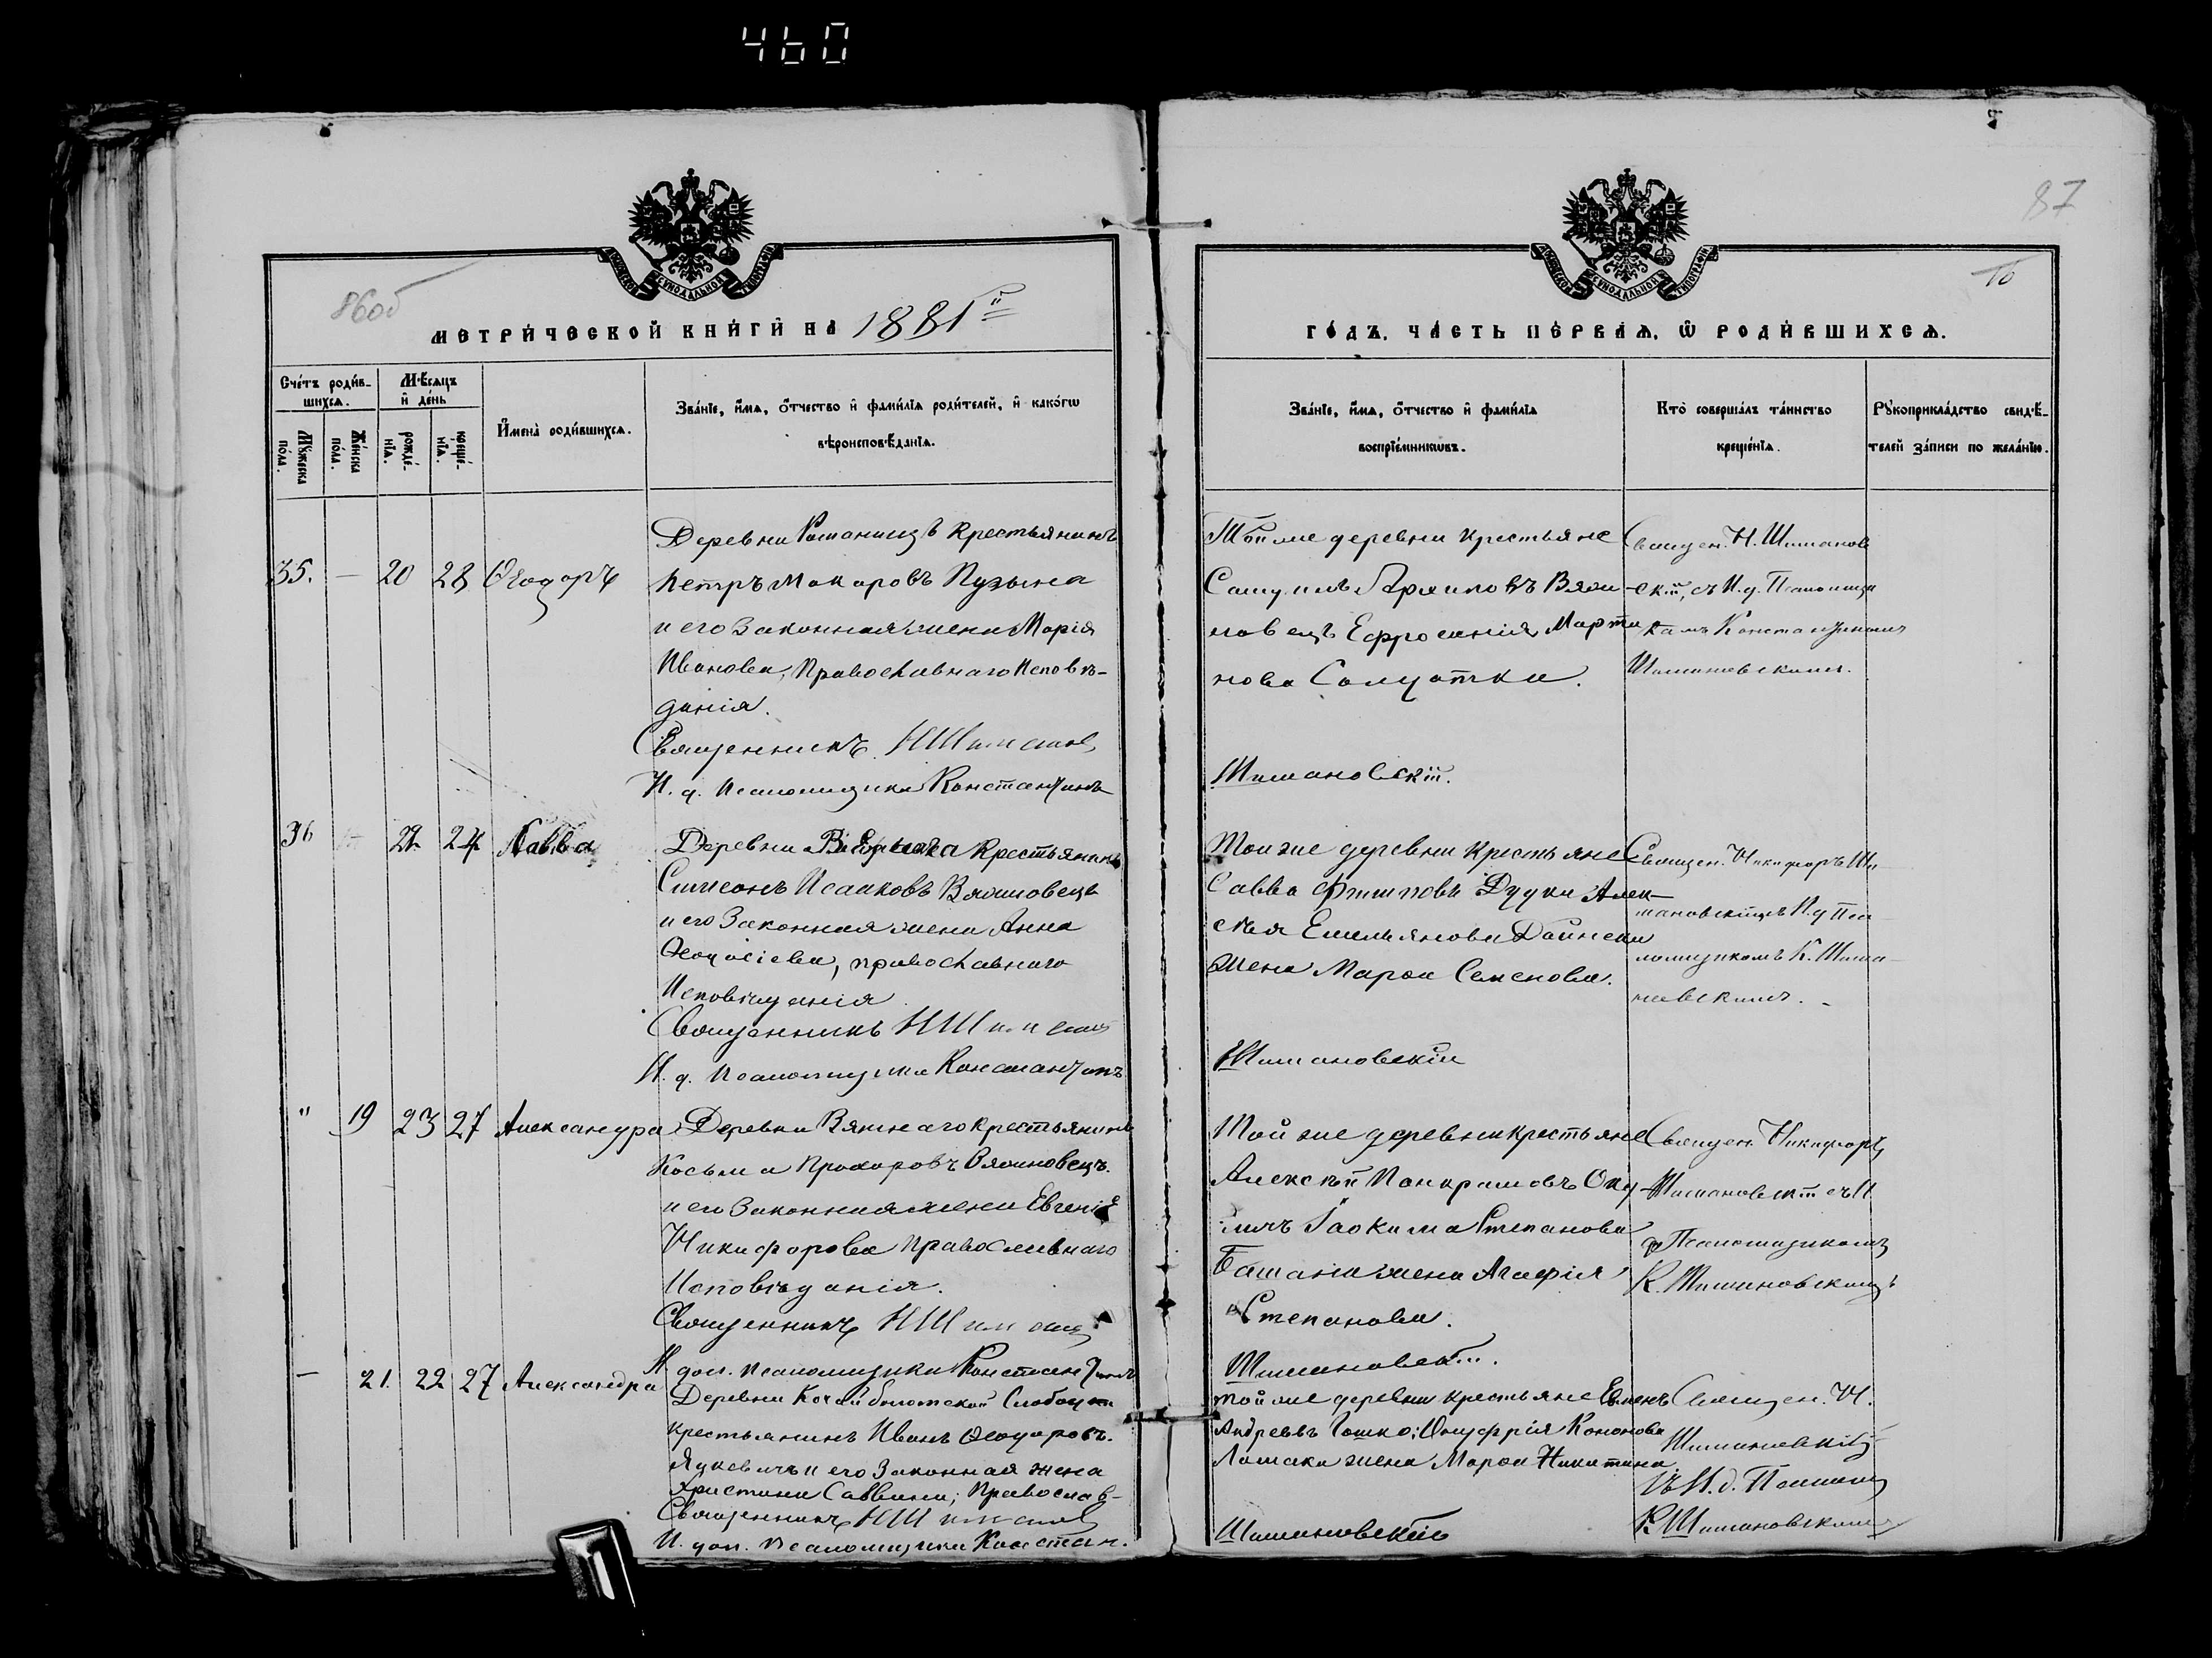 460
87
10
860б
МЕТРИЧЕСКОЙ КНИГИ НА 1881й
ГОДЪ, ЧАСТЬ ПЕРВАЯ, Ѿ РОДИВШИХСЯ.
Счетъ родив-
шихся.
Мѣсяцъ
и день
Мужеска
пола.
Женска
пола.
рожде-
нїя.
креще-
нїя.
Имена родившихся.
Званїе, имя, отчество и фамилїя родителей, и какогѡ
вѣроисповѣданїя.
Званїе, имя, отчество и фамилїя
воспрїемникѡвъ.
Кто совершалъ таинство
крещенїя.
Рукоприкладство свидѣ-
телей записи по желанїю.
35. — 20 28 Ѳеодоръ
Деревни крестьянинъ
Петръ Макаровъ Пузына
и его законная жена Марія
Иванова, Православнаго Исповѣ-
данія.
Священникъ Н Шиманов
И. д. Псаломщика Константинъ
Той же деревни крестьяне
Самуилъ Архиповъ Вяжи-
новецъ Ефросинія Марти
нова
Шимановскій.
Священ. Н. Шиманов
-скій, съ И. д. Псаломщи
комъ Константиномъ
Шимановскимъ.
36 — 22 24 Савва
Деревни крестьянинъ
Симеонъ Исааковъ Вяжиновецъ
и его законная жена Анна
Ѳеодосіева, православнаго
Исповѣданія
Священникъ Н Шиманов
И. д. Псаломщика Константинъ
Той же деревни крестьяне
Савва Филиповъ Дудка Алек-
сѣя Емельянова
жена Марѳа Семенова.
Шимановскій
Священ. Никифоръ Ши
мановскій съ И. д Пса
ломщикомъ К. Шима-
новскимъ.
" 19 23 27 Александра
Деревни крестьянинъ
Косьма Прохоровъ Вяжиновецъ.
и его законная жена Евгенія
Никифорова Православнаго
Исповѣданія.
Священникъ Н Шиманов
И. дол. Псаломщика Константинъ
Той же деревни крестьяне
Алексѣй Панкратовъ
Іаокима Степанова
жена Агафія
Степанова.
Шимановскій.
Священ Никифоръ
Шимановскій съ И.
д Псаломщикомъ
К. Шимановскимъ
— 21. 22 27 Александра
Деревни Слободки
крестьянинъ Иванъ Ѳеодоровъ.
и его законная жена
Христина Саввина; Православ-
Священникъ Н Шиманов
И. дол. Псаломщика Констан.
той же деревни крестьяне
Андреевъ Онуфрія Кононова
жена Марѳа Никитина
Шимановскій
Священ. Н.
Шимановскій
съ И. д. Псаломщ
К. Шимановскимъ